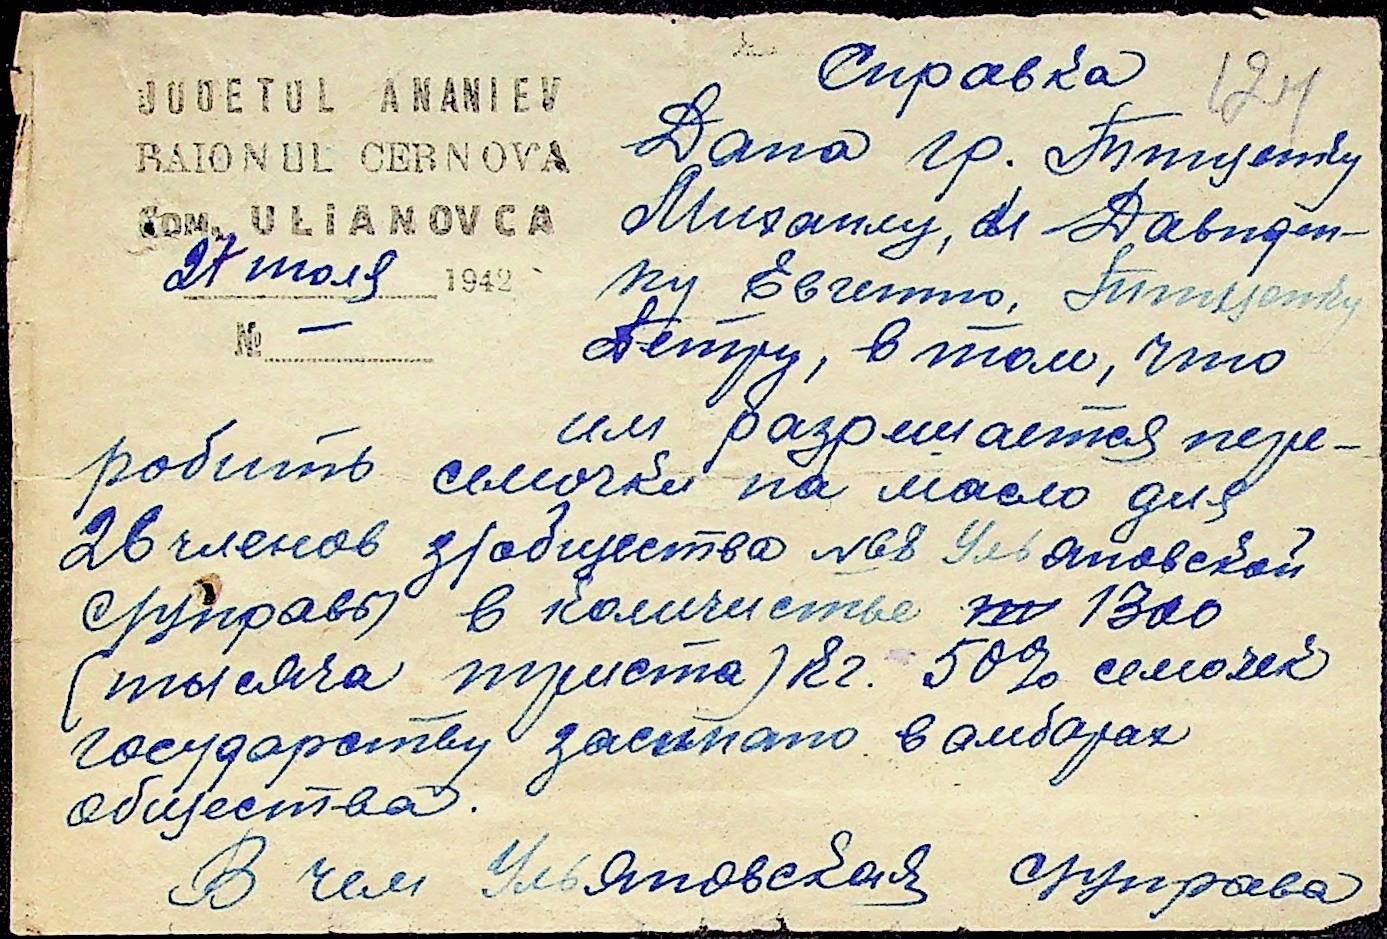 JUDETUL ANANIEV
RAIONUL CERNOVA
COM. ULIANOVCA
27 июля 1942
№ —
124
Справка
Дана гр. Тимченку
Михаилу, и Давиден-
ку Евгению, Тимченку
Петру, в том, что
им разрешается пере-
робить семочки на масло для
26 членов з/общества №8 Ульяновской
с/управы в количистве 1300
(тысяча триста) кг. 50% семочек
государству засыпано в амбарах
общества.
В чем Ульяновская с/управа